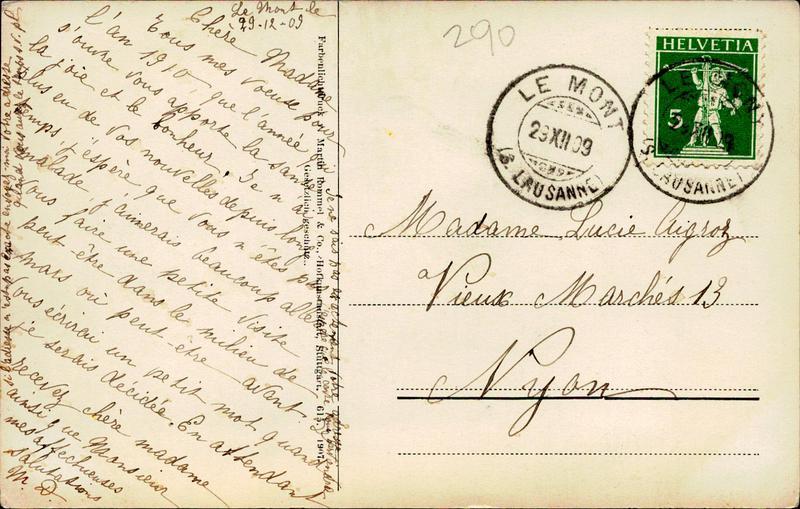 Le Mont le
29-12-09
Chère Madame
Tous mes voeux pour
l'an 1910, que l'année
s'ouvre vous apporte la santé
la joie et le bonheur. Je n'ai
plus eu de vos nouvelles depuis long
temps, j'espère que vous n'êtes pas
malade, j'aimerais beaucoup aller
vous faire une petite visite
peut être dans le milieu de
mars ou peut-être avant.
Vous écrirai un petit mot quand
je serais décidée. En attendant
recevez chère madame
ainsi que Monsieur
mes affectueuses
salutations
M. D.
Je ne suis pas
si l'adresse n'est pas envoyez moi votre adresse
quand vous aurez le temps s. v. pl.
Farbenlichtdruck v. Martin Rommel & Co., Hofkunstanstalt, Stuttgart. 613. 1907
(Gesetzlich geschützt.)
290
HELVETIA
5
LE MONT
29 XII 09
(S. LAUSANNE)
LE MONT
29 XII 09
(S. LAUSANNE)
Madame Lucie Aigroz
Vieux Marchés 13
Nyon